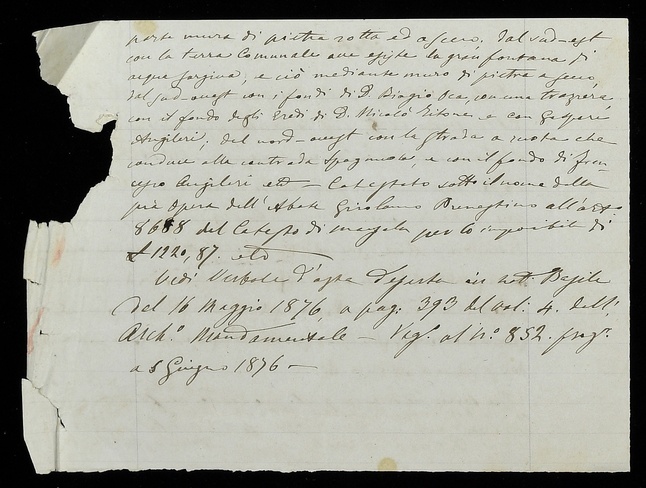 parte mura di pietra rotta ed a secco, dal sud-est
con la terra Comunale ove esiste la gran fontana di
acqua sorgiva, e ciò mediante muro di pietra a secco,
dal sud-ovest con i fondi di D. Biagio Oca, con una trazzera,
con il fondo degli Eredi di D. Nicolò e con Gaspare
Angileri; del nord-ovest con la strada a ruota che
conduce alla contrada Spagnuola, e con il fondo di Fran-
cesco Angileri etc = Catastato sotto il nome della
pia Opera dell'Abate Girolamo all'art.
8688 del Catasto di Marsala per lo imponibile di
£ 1220,87. etc
Vedi Verbale d'asta deserta in not. Basile
del 16 Maggio 1876, a pag. 393 del vol. 4. dell',
Arch.º Mandamentale - Reg.º al n.º 852.
a 5 Giugno 1876 -